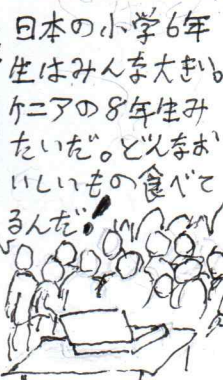 日本の小学6年
生はみんな大きい。
ケニアの8年生み
たいだ。どんなお
いしいもの食べて
るんだ!